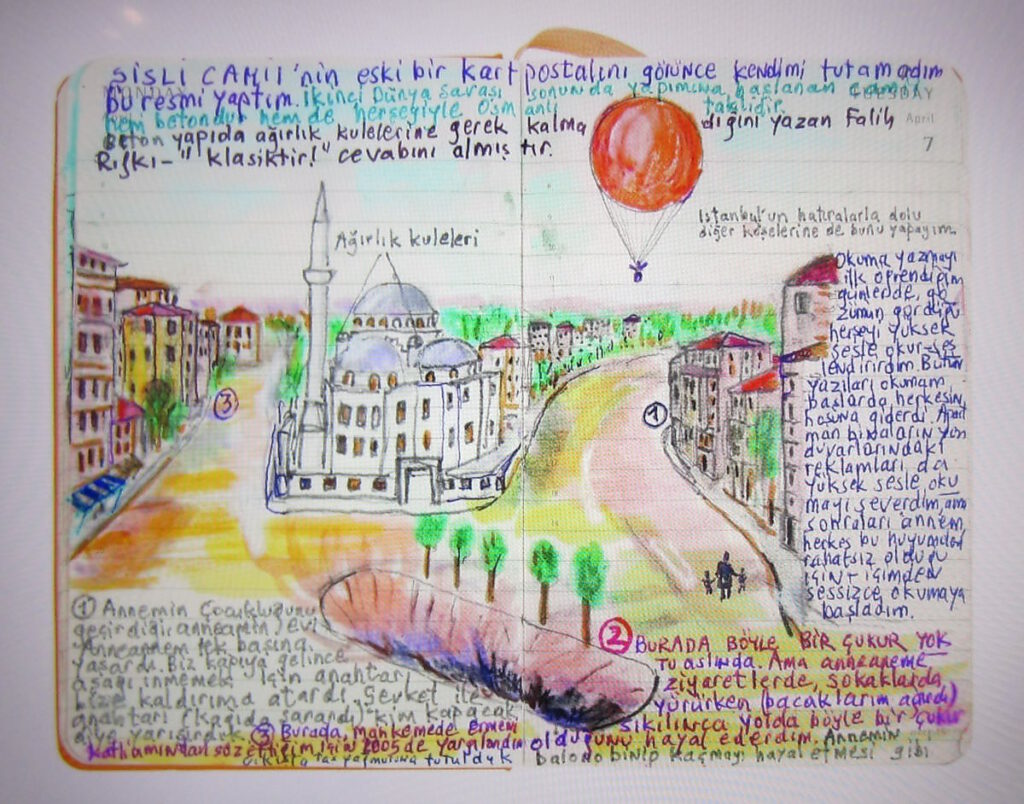 ŞİŞLİ CAMİİ'nin eski bir kartpostalını görünce kendimi tutamadım
bu resmi yaptım. İkinci Dünya Savaşı sonunda yapımına başlanan cami
hem betondur hem de herşeyiyle Osmanlı taklidir.
Beton yapıda ağırlık kulelerine gerek kalmadığını yazan Falih
Rıfkı-"klasiktir!" cevabını almıştır.
MONDAY
TUESDAY
April
7
Ağırlık kuleleri
İstanbul'un hatıralarla dolu
diğer köşelerine de bunu yapayım.
Okuma yazmayı
ilk öğrendiğim
günlerde, gö
zümün gördüğü
herşeyi yüksek
sesle okur-ses
lendirirdim. Bütün
yazıları okumam
başlarda herkesin
hoşuna giderdi. Apart
man binaların yan
duvarlarındaki
reklamları da
yüksek sesle oku
mayı severdim, ama
sonraları annem,
herkes bu huyumdan
rahatsız olduğu
için + içimden
sessizce okumaya
başladım.
3
1
1 Annemin çocukluğunu
geçirdiği anneannemin evi
Anneannem tek başına
yaşardı. Biz kapıya gelince
aşağı inmemek için anahtarı
bize kaldırıma atardı. Şevket ile
anahtarı (kağıda sarardı) kim kapacak
diye yarışırdık.
3 Burada, mahkemede Ermeni
katliamından söz ettiğim için 2005'de yargılandım
çıkışta taş yağmuruna tutulduk
2 BURADA BÖYLE BİR ÇUKUR YOK
TU aslında. Ama anneanneme
ziyaretlerde, sokaklarda
yürürken (bacaklarım ağrırdı)
sıkılınca yolda böyle bir çukur
olduğunu hayal ederdim. Annemin
balona binip kaçmayı hayal etmesi gibi